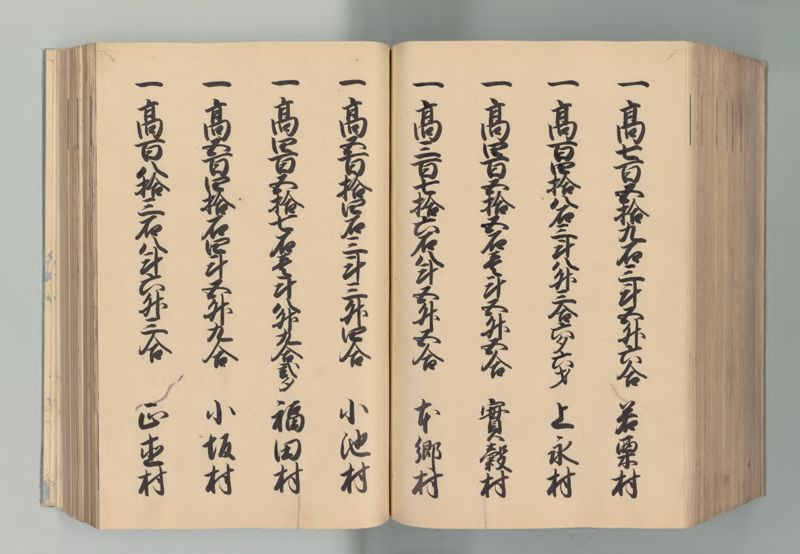 一 高七百五拾九石三斗五升六合 若栗村
一 高百四拾八石三斗八升三合六夕六才 上永村
一 高四百五拾五石壱斗五升五合 實穀村
一 高二百七拾六石八斗五升五合 本郷村
一 高五百拾四石三斗三升四合 小池村
一 高四百五拾七石壱斗八升九合弐夕 福田村
一 高五百四拾石四斗五升九合 小坂村
一 高百八拾三石八斗六升三合 正直村